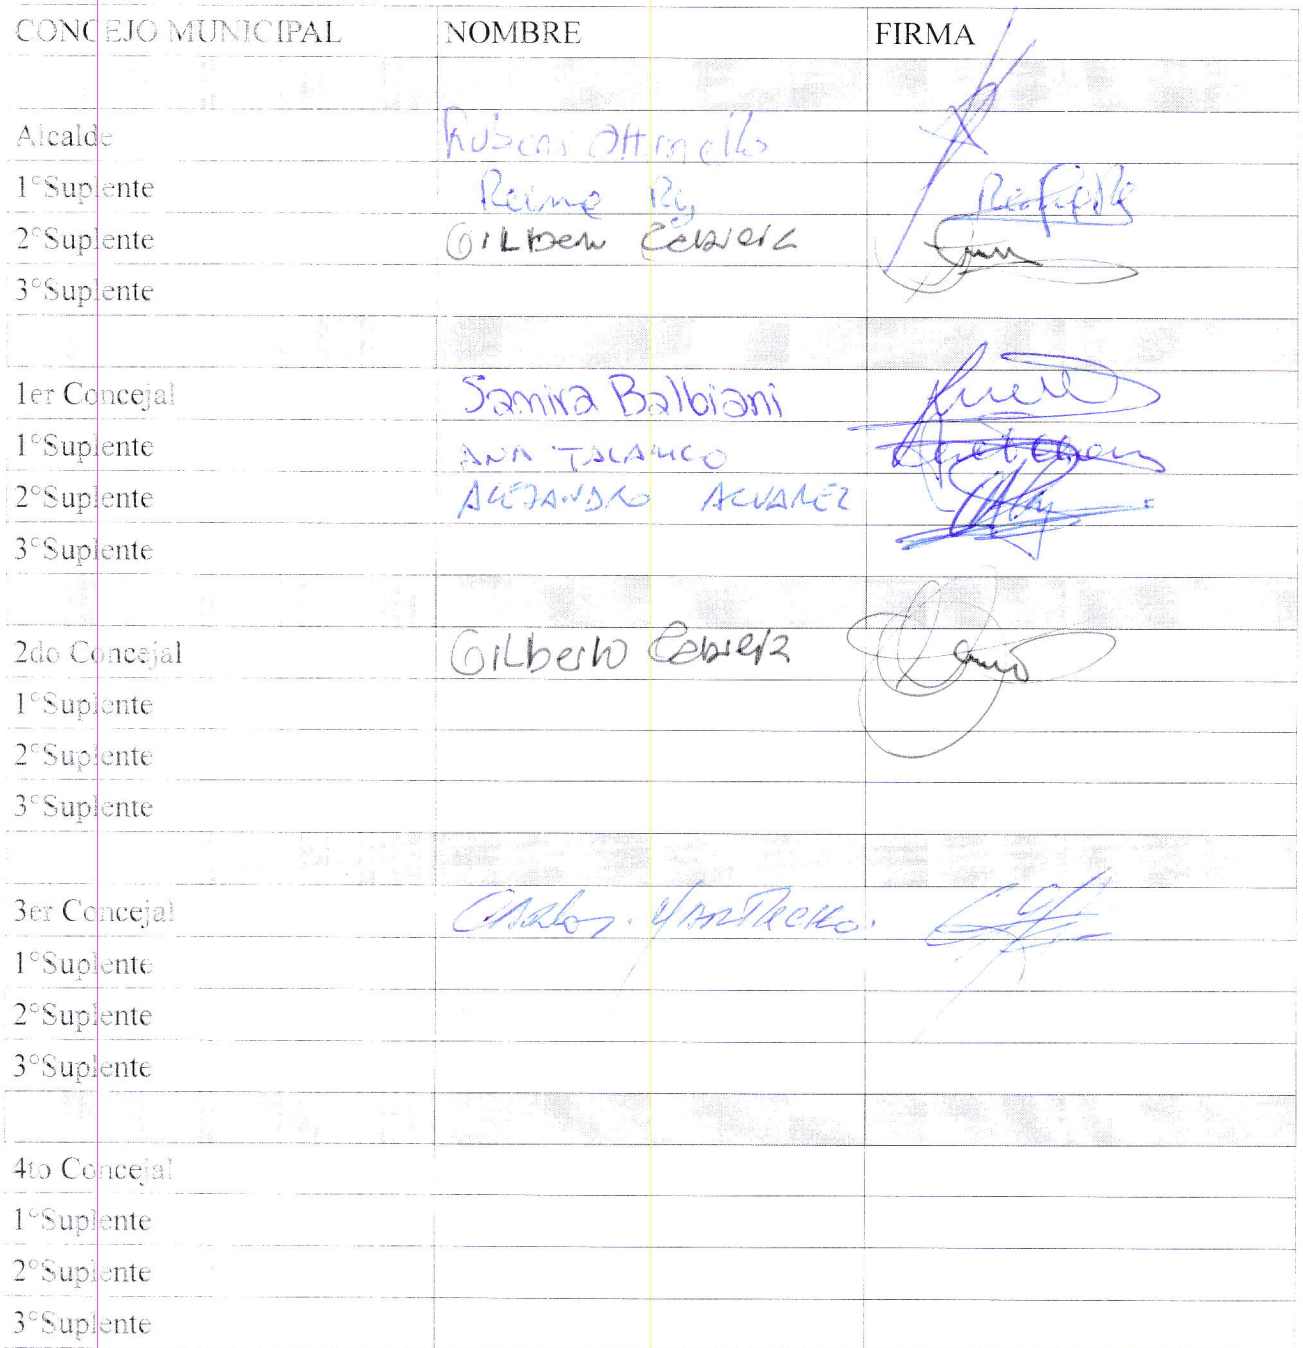 CONCEJO MUNICIPAL NOMBRE FIRMA
Alcalde Ruben Ottonello
1°Suplente
2°Suplente Gilberto Cabrera
3°Suplente
1er Concejal Samira Balbiani
1°Suplente ANA TALAMCO
2°Suplente ALEJANDRO ALVAREZ
3°Suplente
2do Concejal Gilberto Cabrera
1°Suplente
2°Suplente
3°Suplente
3er Concejal CARLOS
1°Suplente
2°Suplente
3°Suplente
4to Concejal
1°Suplente
2°Suplente
3°Suplente